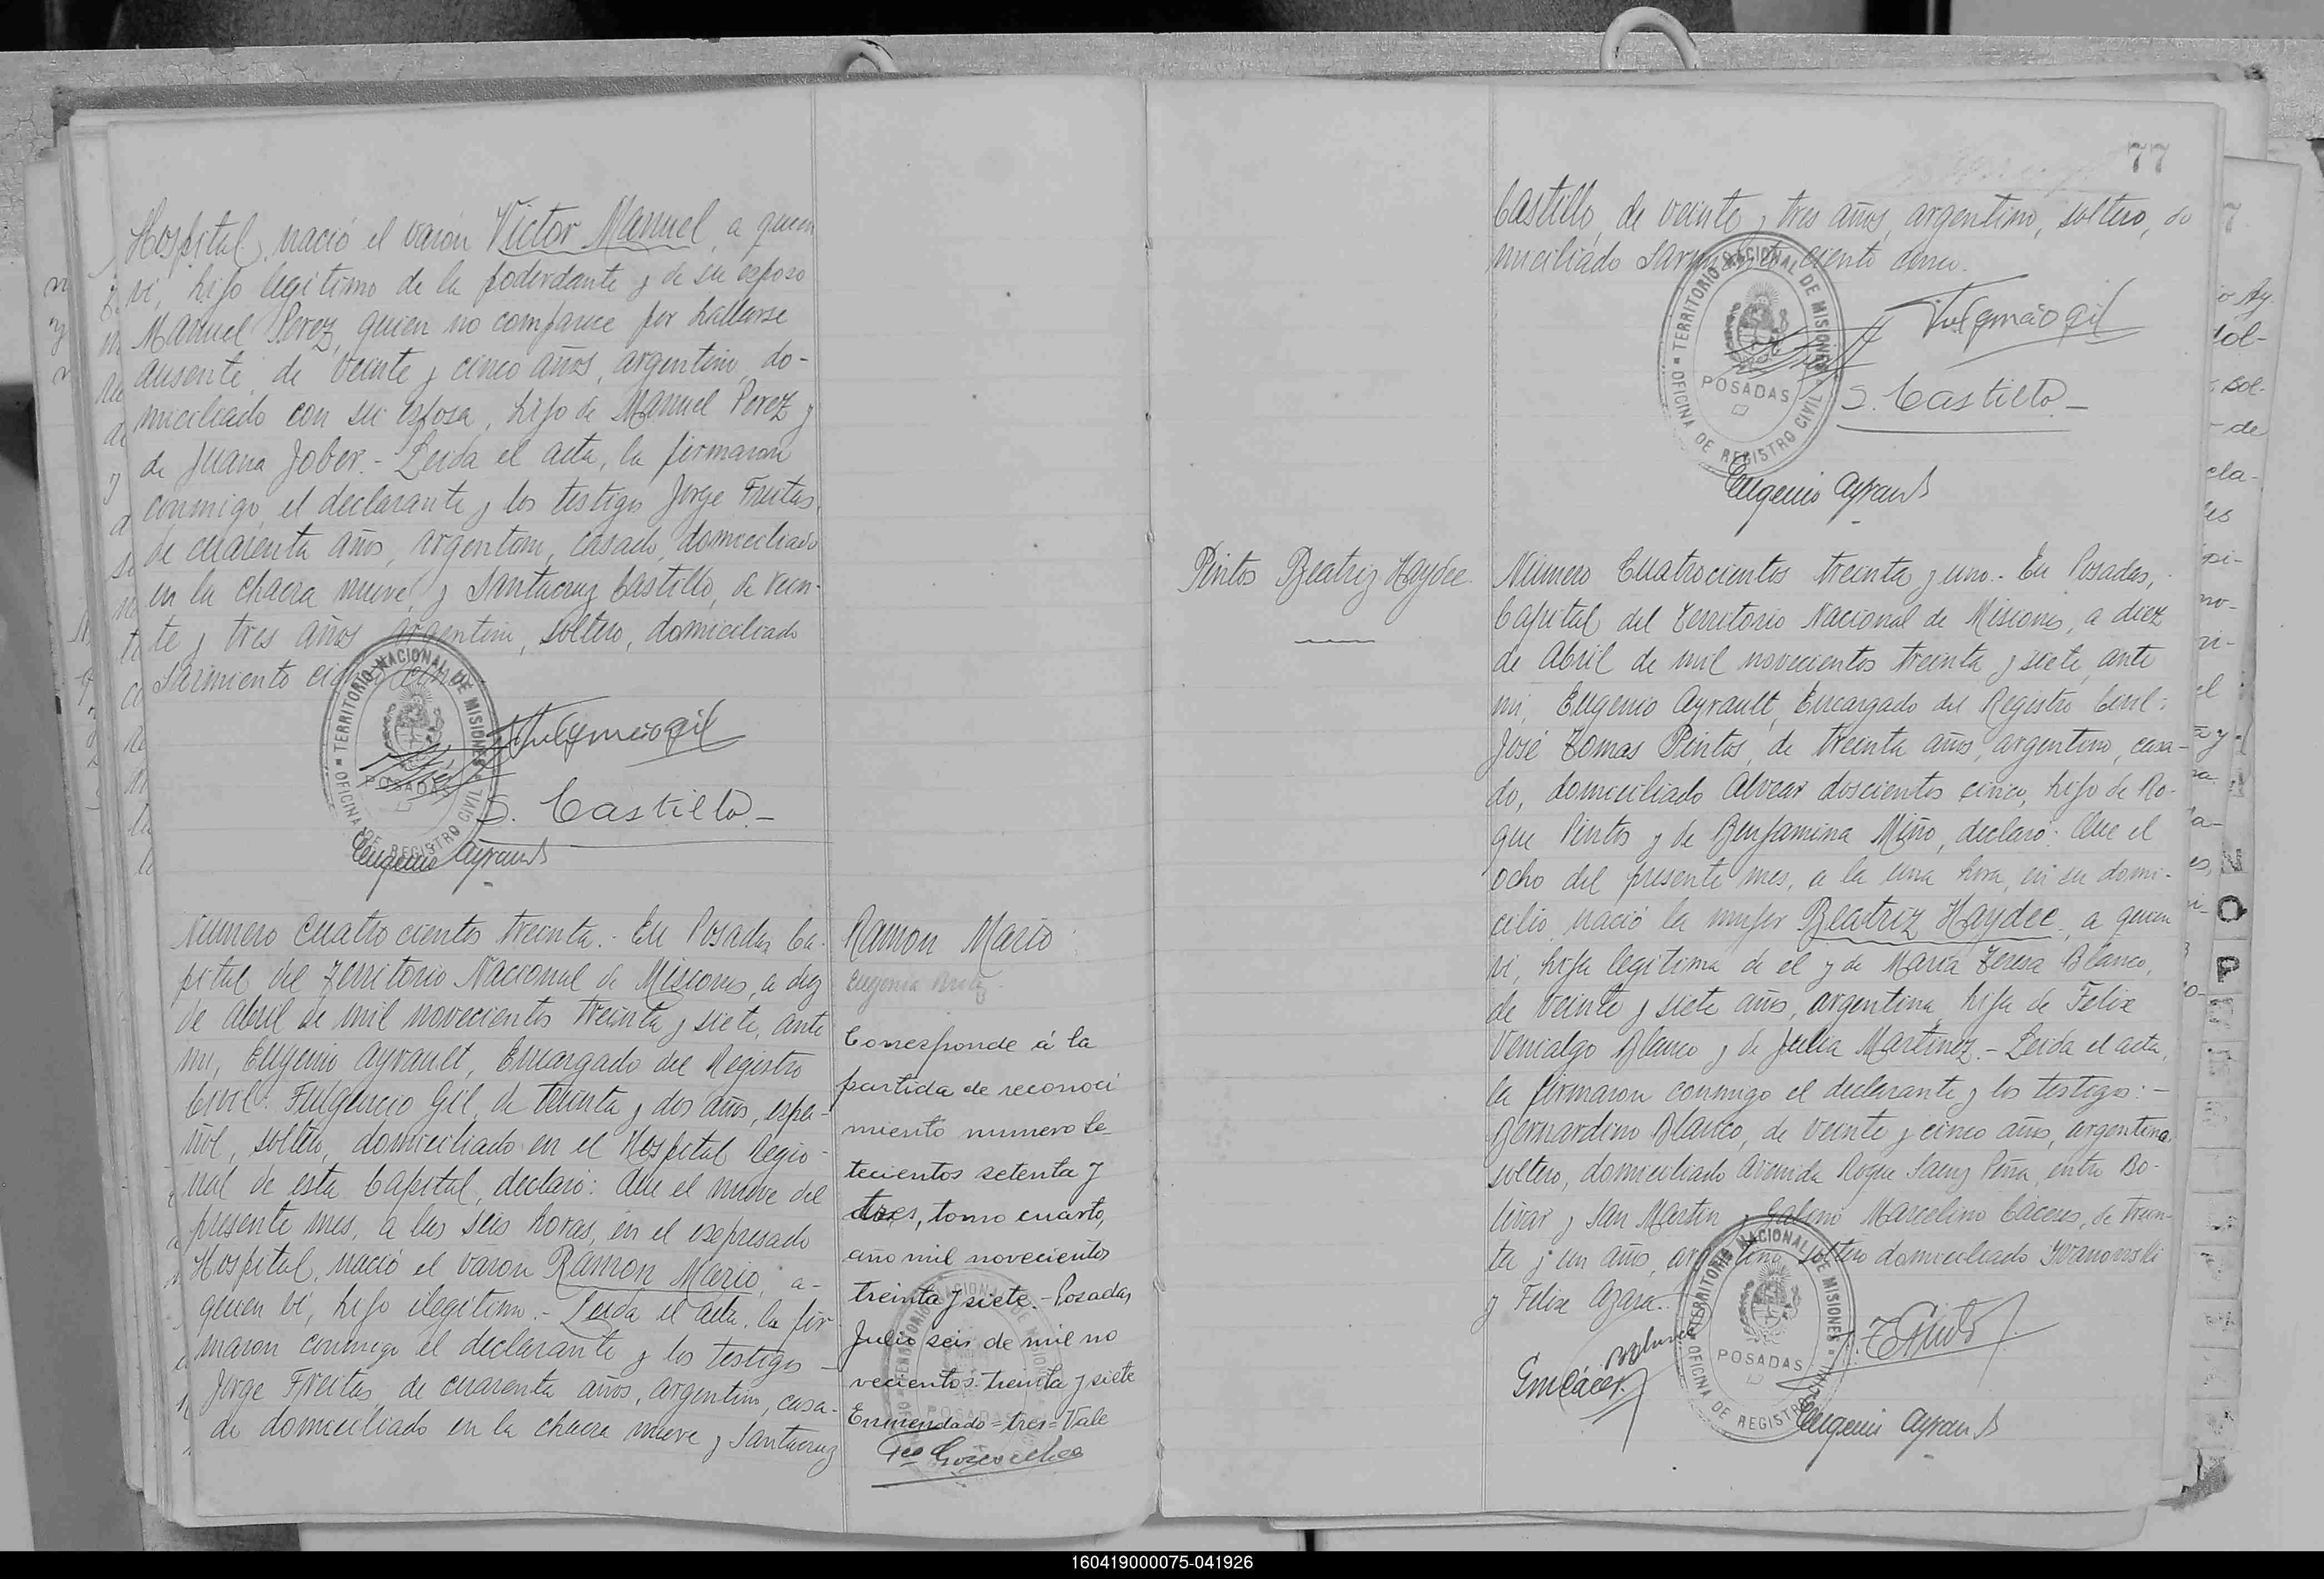 Hospital, nació el varon Victor Manuel, a quien
vi, hijo legitimo de la poderdante y de su esposo
Manuel Perez, quien no comparece por hallarse
ausente, de veinte y cinco años, argentino, do-
miciliado con su esposa, hijo de Manuel Perez y
de Juana Jober.- Leida el acta, la firmaron
conmigo, el declarante y los testigos Jorge Freitas,
de cuarenta años, argentino, casado, domiciliado
en la chacra nueve, y Santacruz Castillo, de vein-
te y tres años argentino, soltero, domiciliado
Sarmiento ciento cinco.
Fulgencio Gil
S. Castillo.-
Eugenio Ayrault
TERRITORIO NACIONAL DE MISIONES
OFICINA DE REGISTRO CIVIL
POSADAS
Número Cuatrocientos treinta.- En Posadas Ca-
pital del Territorio Nacional de Misiones, a diez
de Abril de mil novecientos treinta y siete, ante
mi, Eugenio Ayrault, Encargado del Registro
Civil: Fulgencio Gil, de treinta y dos años, espa-
ñol, soltero, domiciliado en el Hospital Regio-
nal de esta Capital, declaró: Que el nueve del
presente mes, a las seis horas, en el expresado
Hospital, nació el varon Ramon Mario, a-
quien vi, hijo ilegitimo.- Leida el acta, la fir-
maron conmigo el declarante y los testigos-
Jorge Freitas, de cuarenta años, argentino, casa-
do domiciliado en la chacra nueve y Santacruz
Ramon Mario
Eugenia
Corresponde á la
partida de reconoci
miento numero se_
tecientos setenta y
tres, tomo cuarto,
año mil novecientos
treinta y siete.- Posadas,
Julio seis de mil no
vecientos treinta y siete
Enmendado=tres=Vale
77
Castillo, de veinte y tres años, argentino, soltero, do
miciliado Sarmiento ciento cinco.
Fulgencio Gil
S. Castillo.-
Eugenio Ayrault
TERRITORIO NACIONAL DE MISIONES
OFICINA DE REGISTRO CIVIL
POSADAS
Pintos Beatriz Haydee
Número Cuatrocientos treinta y uno.- En Posadas,
Capital del Territorio Nacional de Misiones, a diez
de Abril de mil novecientos treinta y siete, ante
mi, Eugenio Ayrault, Encargado del Registro Civil:
José Tomas Pintos, de treinta años, argentino, casa-
do, domiciliado Alvear doscientos cinco, hijo de Ro-
que Pintos y de Benjamina Miño, declaró: Que el
ocho del presente mes, a la una hora, en su domi-
cilio, nació la mujer Beatriz Haydee, a quien
vi, hija legitima de el y de Maria Teresa Blanco,
de veinte y siete años, argentina, hija de Felix
Blanco y de Julia Martinez.- Leida el acta,
la firmaron conmigo el declarante y los testigos:-
Bernardino Blanco, de veinte y cinco años, argentino,
soltero, domiciliado avenida Roque Saenz Peña, entre Bo-
livar y San Martin y Galeno Marcelino Cáceres, de trein-
ta y un años, argentino soltero domiciliado
y Felix Azara.
GmCáceres
Eugenio Ayrault
TERRITORIO NACIONAL DE MISIONES
OFICINA DE REGISTRO CIVIL
POSADAS
160419000075-041926